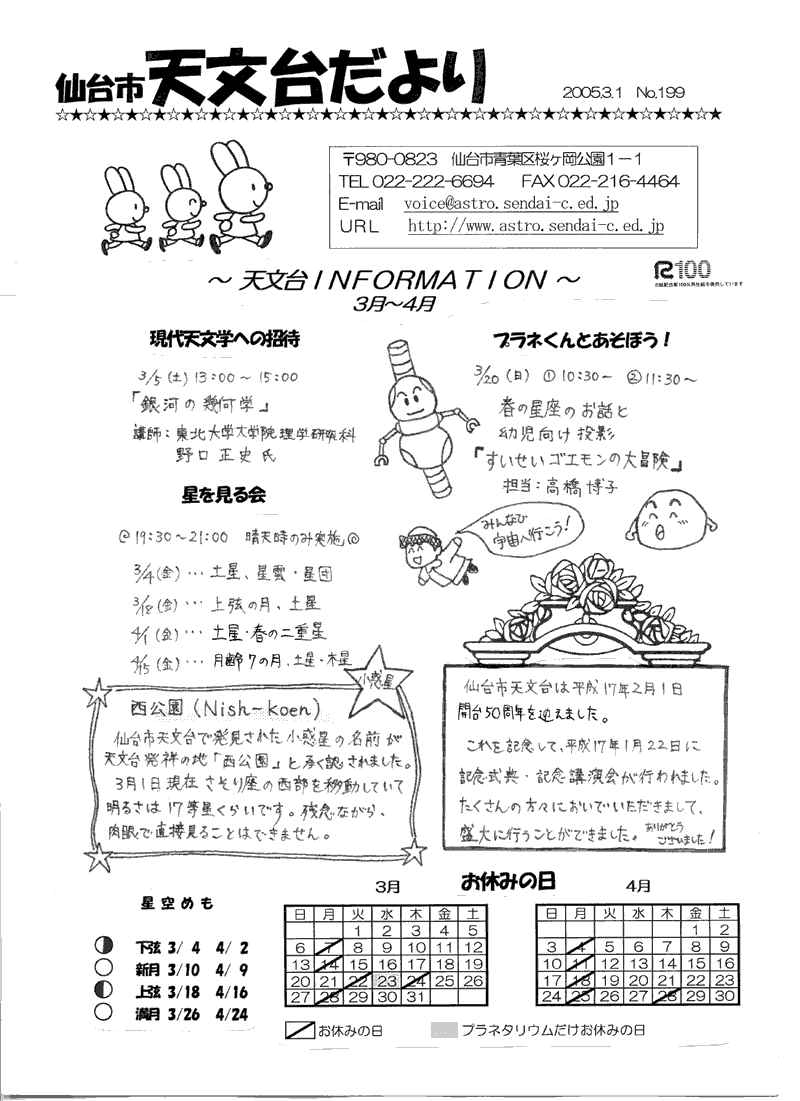 仙台市 天文台だより
2005.3.1 No.199
☆★☆★☆★☆★☆★☆★☆★☆★☆★☆★☆★☆★☆★☆★☆★☆★☆★☆★☆★☆★☆★☆★☆★☆★
〒980-0823 仙台市青葉区桜ヶ岡公園1-1
TEL 022-222-6694 FAX 022-216-4464
E-mail voice@astro.sendai-c.ed.jp
URL http://www.astro.sendai-c.ed.jp
～ 天文台INFORMATION ～
3月～4月
R100
古紙配合率100%再生紙を使用しています
現代天文学への招待
3/5(土) 13:00～15:00
「銀河の幾何学」
講師:東北大学大学院理学研究科
野口正史氏
プラネくんとあそぼう!
3/20(日) ①10:30～ ②11:30～
春の星座のお話と
幼児向け投影
『すいせいゴエモンの大冒険』
担当:高橋博子
星を見る会
@19:30～21:00 晴天時のみ実施@
3/4(金)…土星、星雲・星団
3/18(金)…上弦の月、土星
4/1(金)…土星・春の二重星
4/15(金)…月齢7の月、土星・木星
みんなで
宇宙へ行こう!
小惑星
西公園(Nish-koen)
仙台市天文台で発見された小惑星の名前が
天文台発祥の地「西公園」と承認されました。
3月1日現在さそり座の西部を移動していて
明るさは17等星くらいです。残念ながら、
肉眼で直接見ることはできません。
仙台市天文台は平成17年2月1日
開台50周年を迎えました。
これを記念して、平成17年1月22日に
記念式典・記念講演会が行われました。
たくさんの方々においでいただきまして、
盛大に行うことができました。ありがとう
ございました!
星空めも
下弦 3/4 4/2
新月 3/10 4/9
上弦 3/18 4/16
満月 3/26 4/24
お休みの日
3月
日 月 火 水 木 金 土
1 2 3 4 5
6 7 8 9 10 11 12
13 14 15 16 17 18 19
20 21 22 23 24 25 26
27 28 29 30 31
4月
日 月 火 水 木 金 土
1 2
3 4 5 6 7 8 9
10 11 12 13 14 15 16
17 18 19 20 21 22 23
24 25 26 27 28 29 30
お休みの日
プラネタリウムだけお休みの日